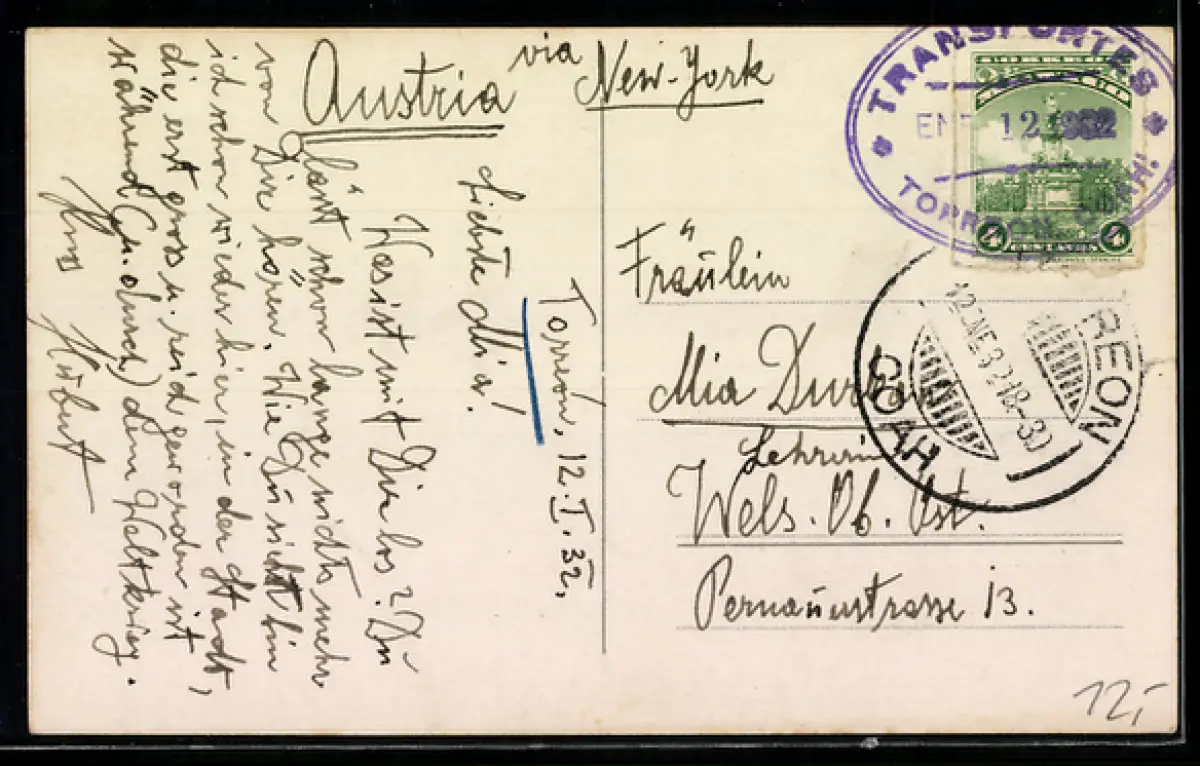 Austria via New-York
Torreón, 12.I.32.
Liebste Mia!
Was ist mit Dir los? Du
läßt schon lange nichts mehr
von Dir hören. Wie Du siehst bin
ich schon wieder hier, in der Stadt,
die erst gross u. reich geworden ist
während (u. durch) dem Weltkrieg.
Herbert
Fräulein
Mia
Lehrerin
Wels. Ob. Öst.
Pernauerstrasse 13.
TRANSPORTES
ENE 12 1932
TORREON, COAH.
4 4
REON
12 NE 32 18-30
COAH
12,-